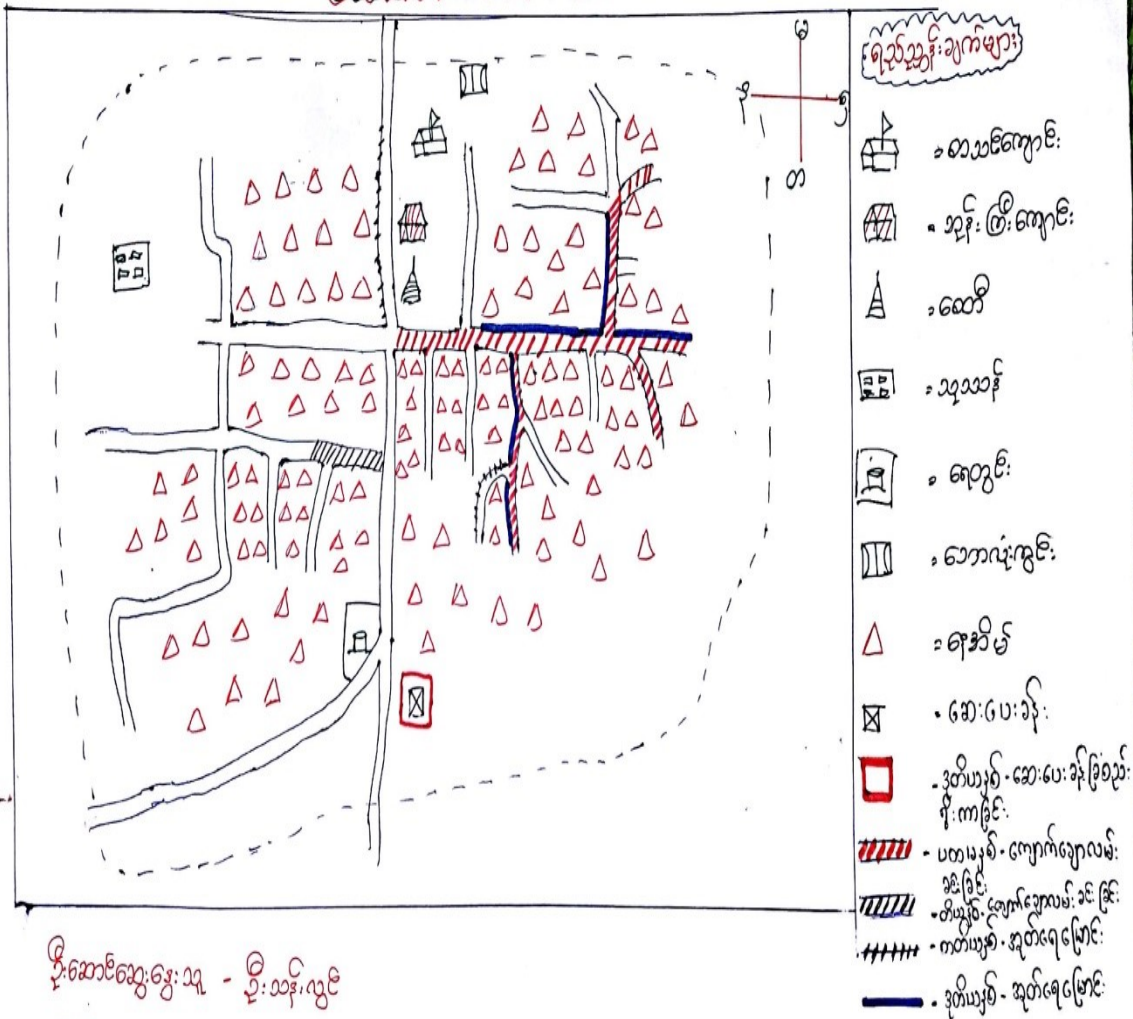 မ
န
စ
တ
ရည်ညွှန်းချက်များ
= စာသင်ကျောင်း
= ဘုန်းကြီးကျောင်း
= စေတီ
= သုသာန်
= ရေတွင်း
= ဘောလုံးကွင်း
= နေအိမ်
= ဆေးပေးခန်း
- ဒုတိယနှစ် - ဆေးပေးခန်းခြံစည်း
ရိုးကာခြင်း
- ပထမနှစ် - ကျောက်ချောလမ်း
ခင်းခြင်း
- တတိယနှစ် - ကျောက်ချောလမ်းခင်းခြင်း
- တတိယနှစ် - အုတ်ရေမြောင်း
- ဒုတိယနှစ် - အုတ်ရေမြောင်း
ဦးဆောင်ဆွေးနွေးသူ - ဦးသန်းလွင်